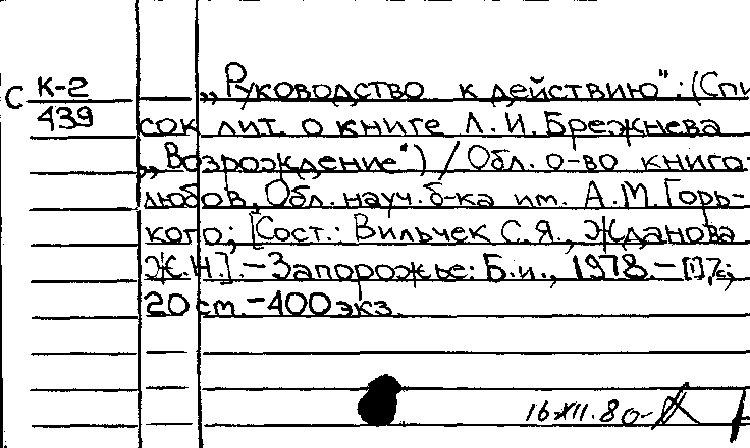 С К-2
439
„Руководство к действию": (Спи
сок лит. о книге Л. И. Брежнева
„Возрождение") / Обл. о-во книго-
любов, Обл. науч. б-ка им. А. М. Горь-
кого; [Сост.: Вильчек С.Я., Жданова
Ж.Н.]. - Запорожье: Б.и., 1978. -
20 см. - 400 экз.
16.XII.80